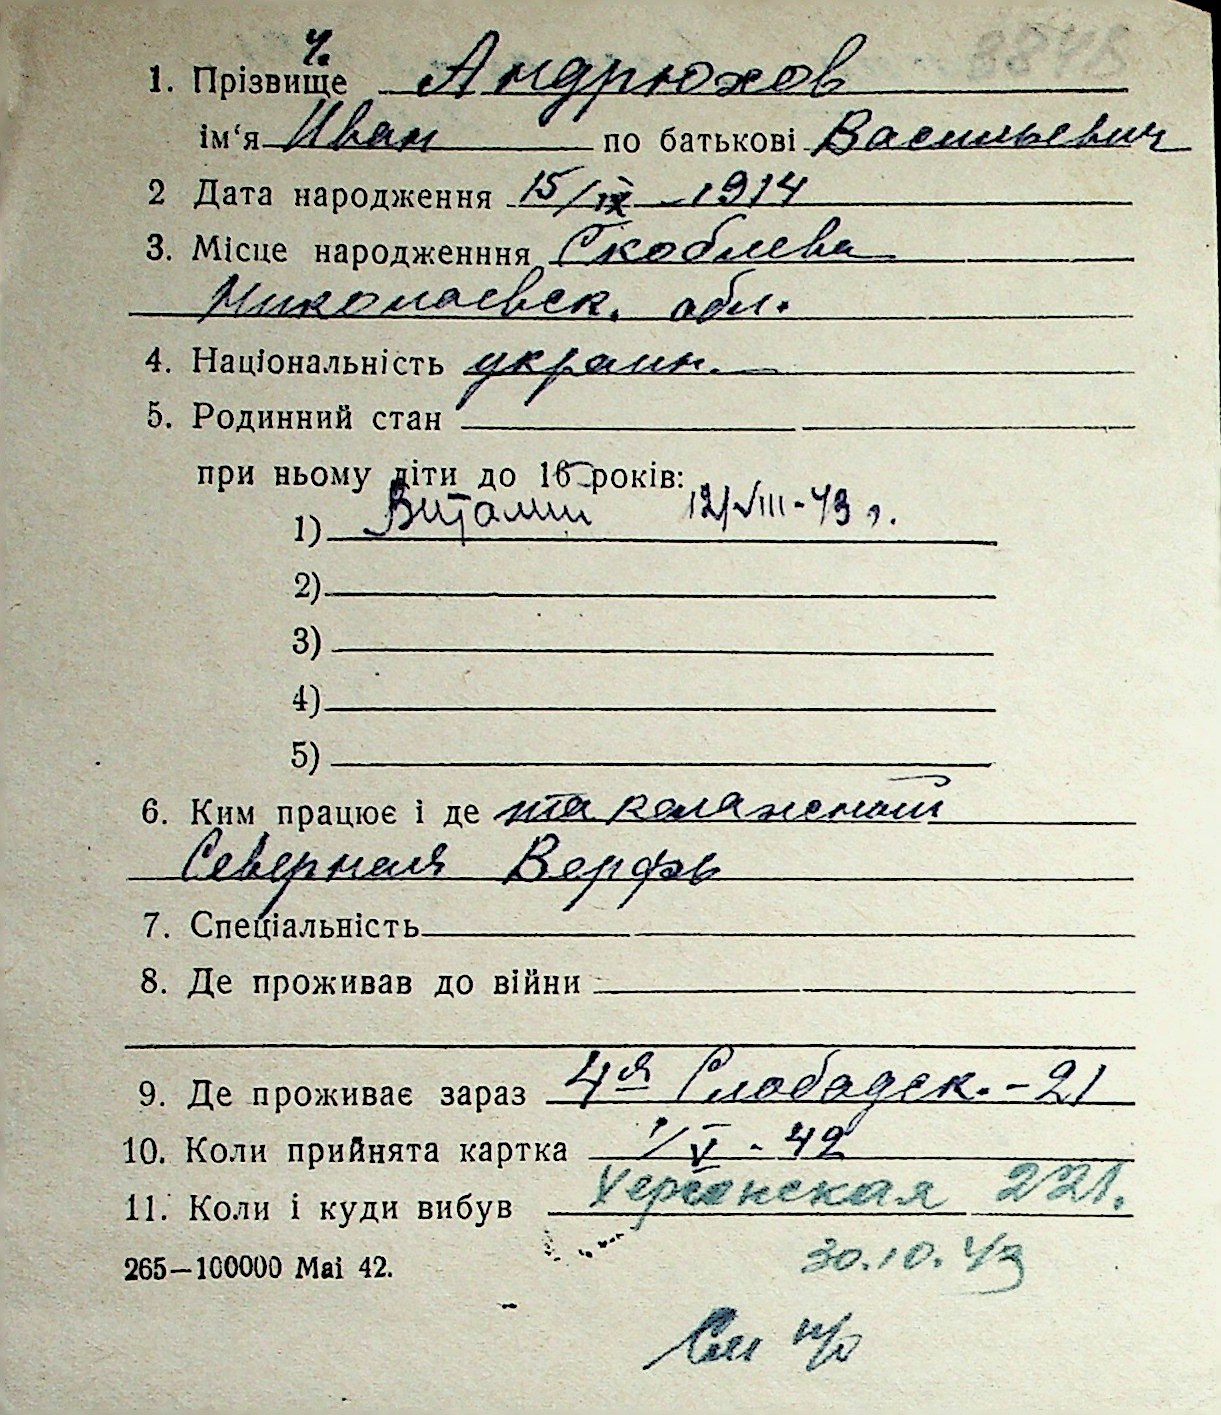 3848
ч.
1. Прізвище Андрюхов
ім‘я Иван по батькові Васильевич
2 Дата народження 15/IX - 1914
3. Місце народженння Скоблева
Николаевск. обл.
4. Національність украин.
5. Родинний стан
при ньому діти до 16 років:
1) Виталий 12/VIII-43 г.
2)
3)
4)
5)
6. Ким працює і де такелажений
Северная Верфь
7. Спеціальність
8. Де проживав до війни
9. Де проживає зараз 4я Слободск. - 21
10. Коли прийнята картка 1/V - 42
11. Коли і куди вибув Херсонская 221.
265—100000 Mai 42. 30.10.43
См н/о